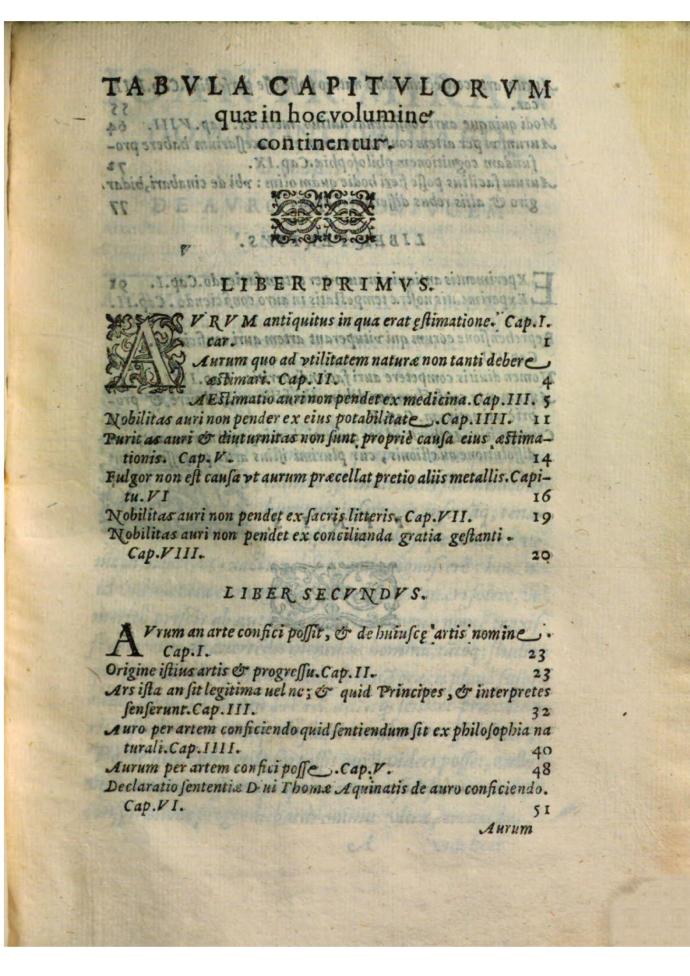 TABVLA CAPITVLORVM
quæ in hoc volumine
continentur.
LIBER PRIMVS.
AVRVM antiquitus in qua erat ęstimatione. Cap.I.
car. 1
Aurum quo ad vtilitatem naturæ non tanti debere
æstimari. Cap. II. 4
AEstimatio auri non pendet ex medicina. Cap. III. 5
Nobilitas auri non pender ex eius potabilitate. Cap. IIII. 11
Puritas auri & diuturnitas non sunt propriè causa eius æstima-
tionis. Cap. V. 14
Fulgor non est causa vt aurum præcellat pretio aliis metallis. Capi-
tu. VI 16
Nobilitas auri non pendet ex sacris litteris. Cap. VII. 19
Nobilitas auri non pendet ex concilianda gratia gestanti.
Cap. VIII. 20
LIBER SECVNDVS.
AVrum an arte confici possit, & de huiuscę artis nomine.
Cap. I. 23
Origine istius artis & progressu. Cap. II. 23
Ars ista an sit legitima uel ne; & quid Principes, & interpretes
senserunt. Cap. III. 32
Auro per artem conficiendo quid sentiendum sit ex philosophia na
turali. Cap. IIII. 40
Aurum per artem confici posse. Cap. V. 48
Declaratio sententiæ D ui Thomæ Aquinatis de auro conficiendo.
Cap. VI. 51
Aurum